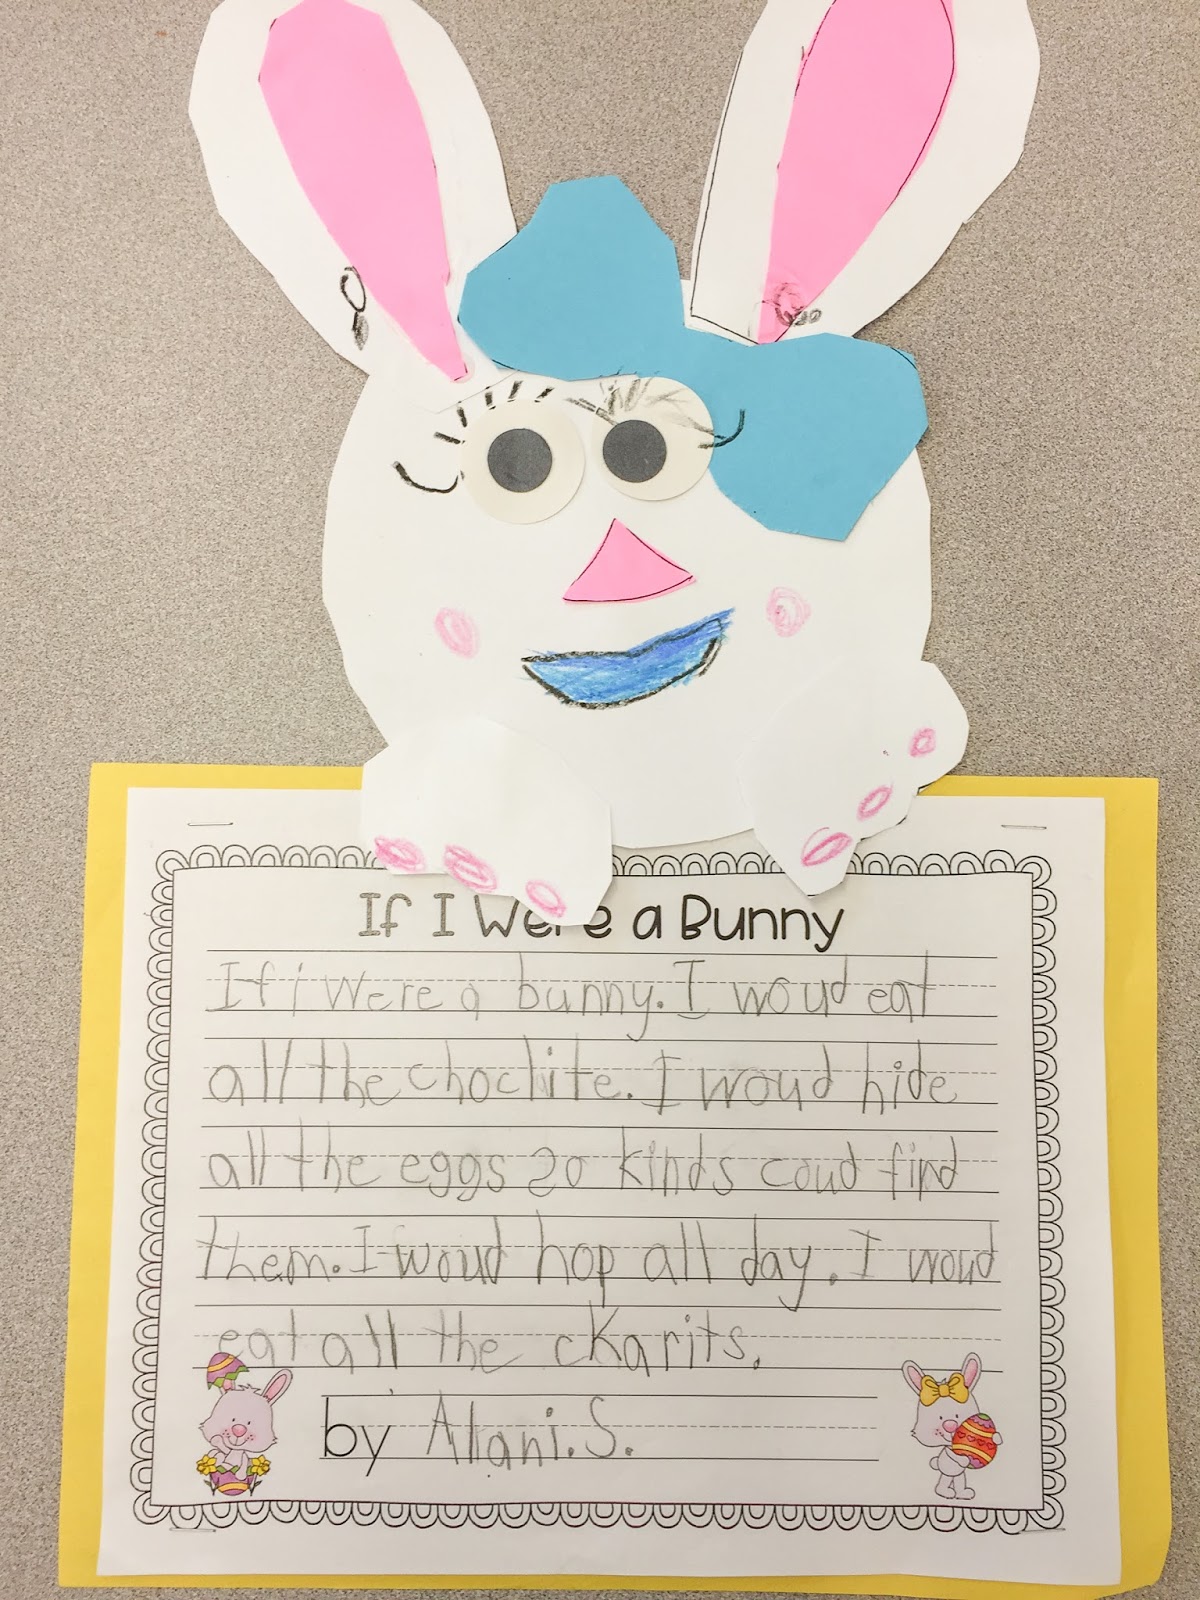 If I Were a Bunny
If i were a bunny. I woud eat
all the choclite. I woud hide
all the eggs so kinds coud find
them. I woud hop all day. I woud
eat all the ckarits.
by Alani. S.